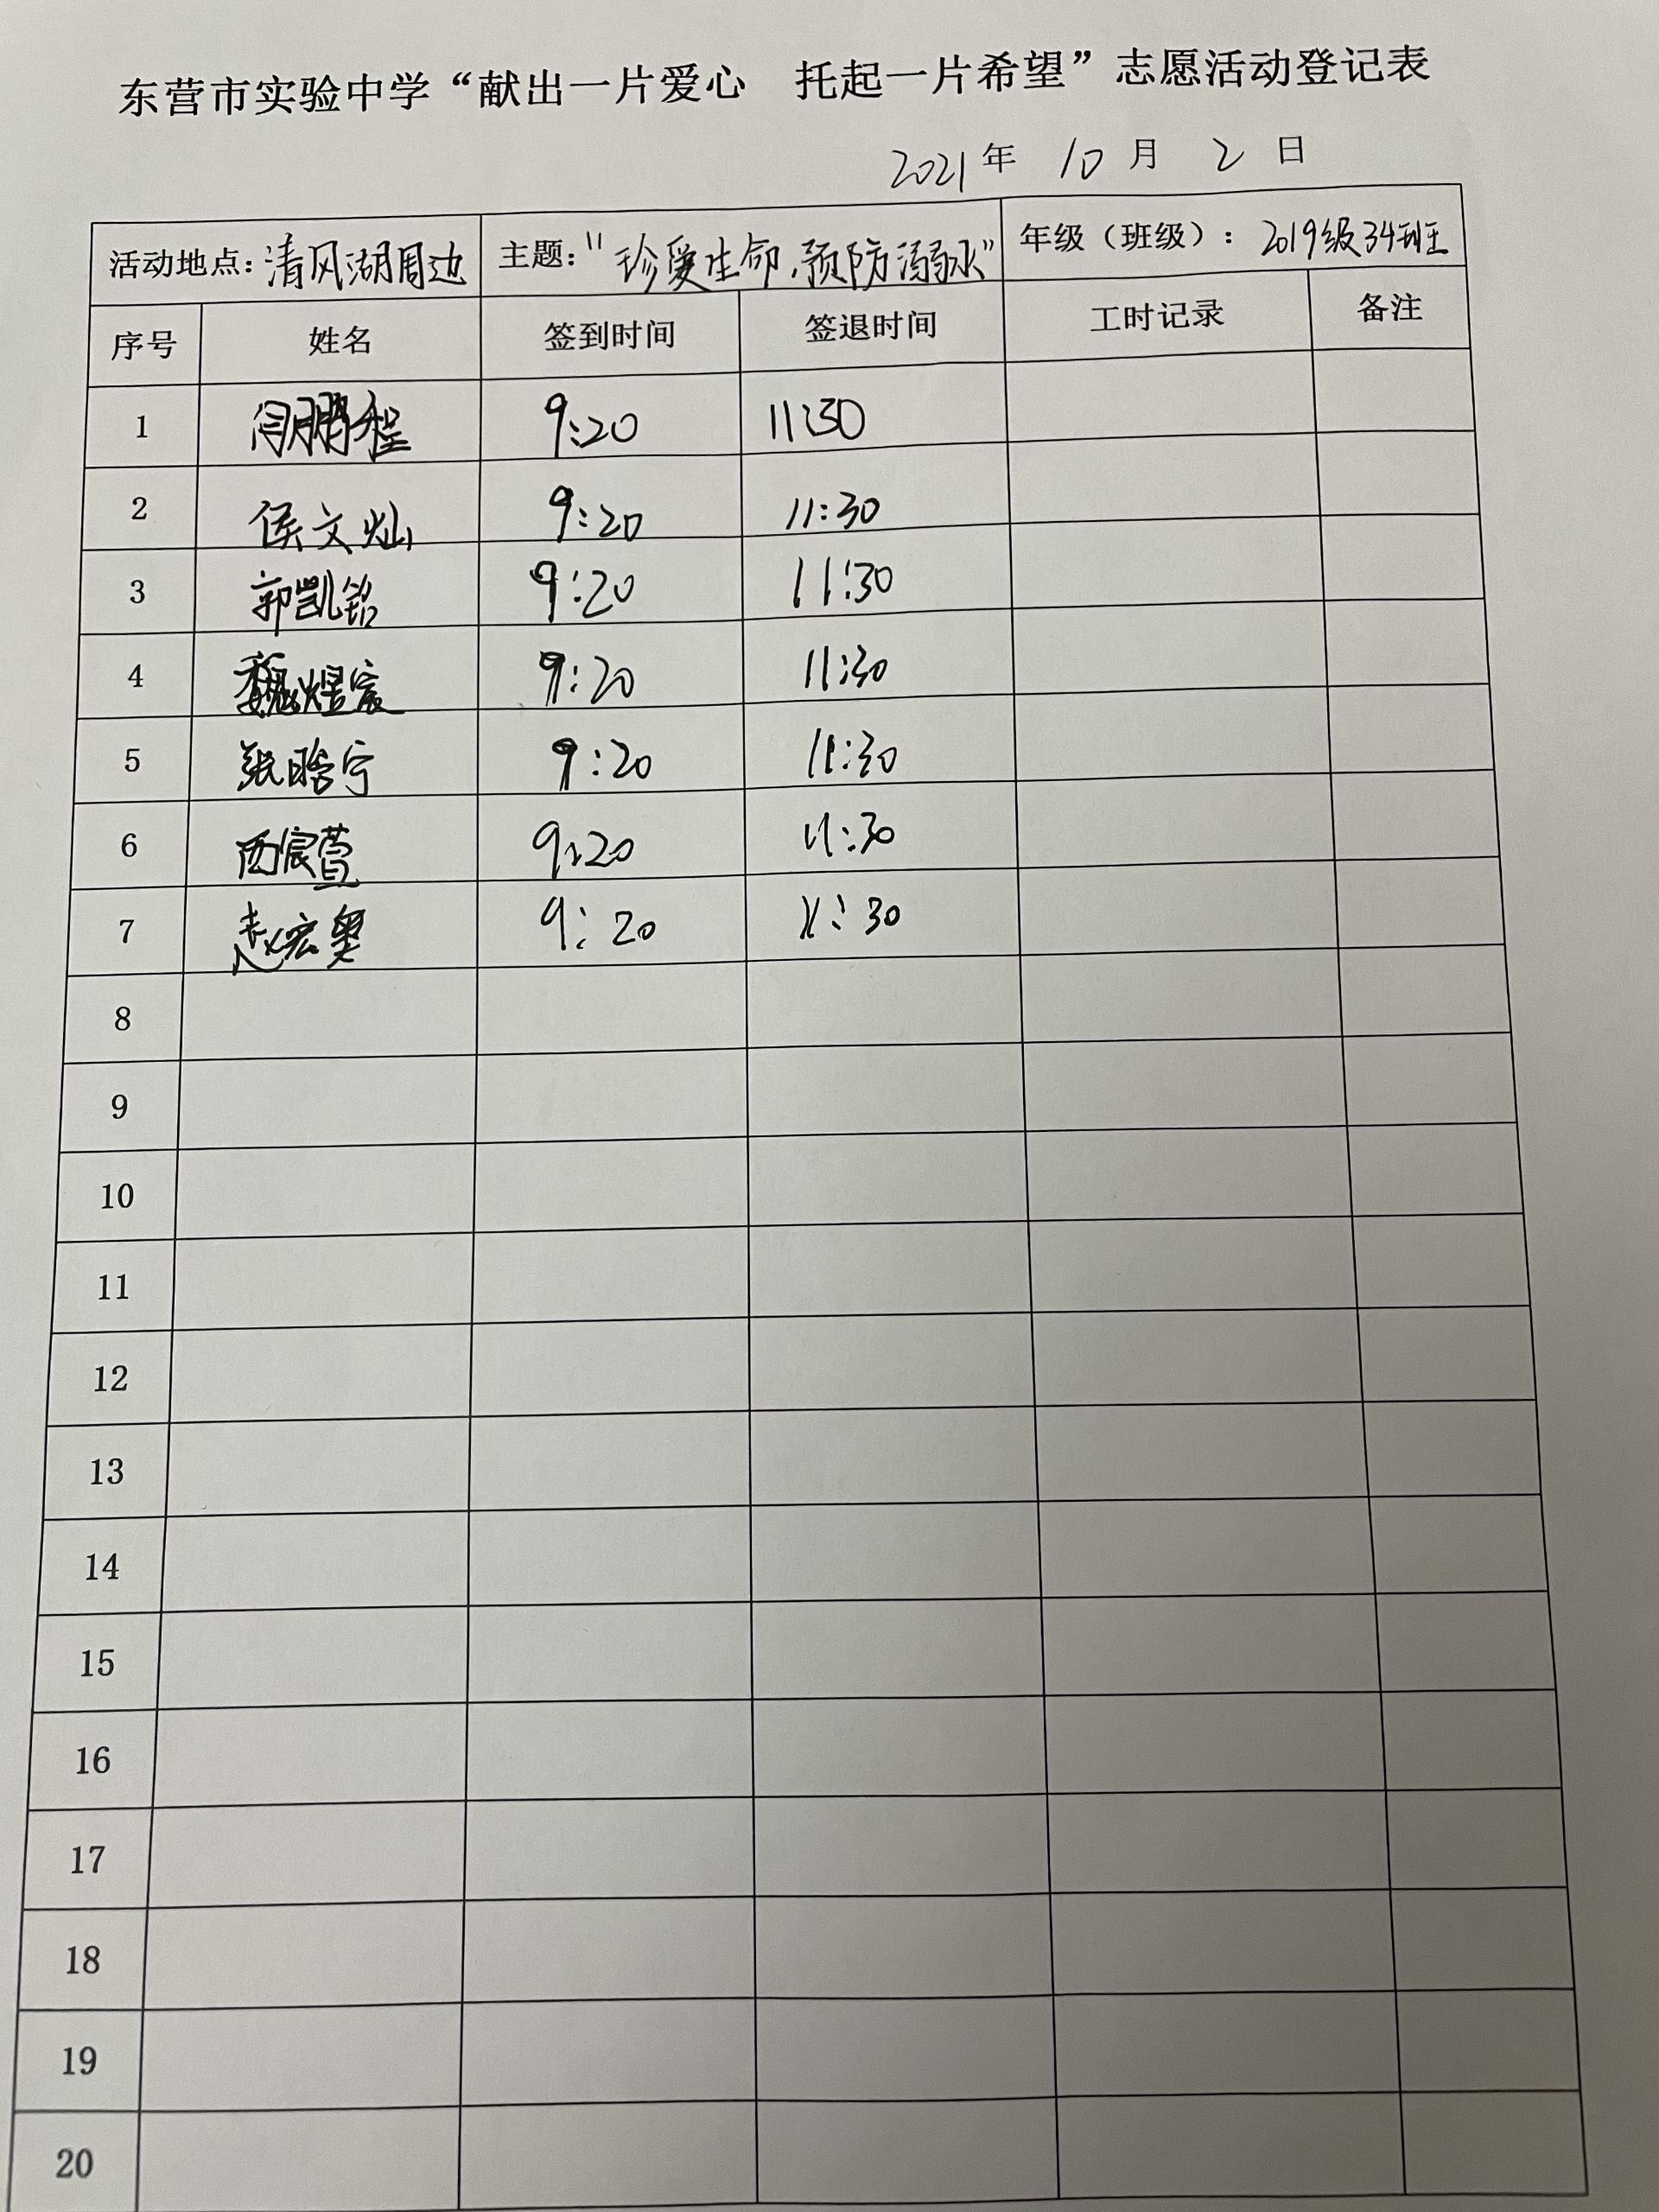 东营市实验中学“献出一片爱心 托起一片希望”志愿活动登记表
2021年 10月 2日
活动地点：清风湖周边 主题：“珍爱生命，预防溺水” 年级（班级）：2019级34班
序号 姓名 签到时间 签退时间 工时记录 备注
1 闫鹏程 9:20 11:30
2 侯文灿 9:20 11:30
3 郭凯铭 9:20 11:30
4 魏煜宸 9:20 11:30
5 张晗宁 9:20 11:30
6 西宸萱 9:20 11:30
7 赵宏奥 9:20 11:30
8
9
10
11
12
13
14
15
16
17
18
19
20